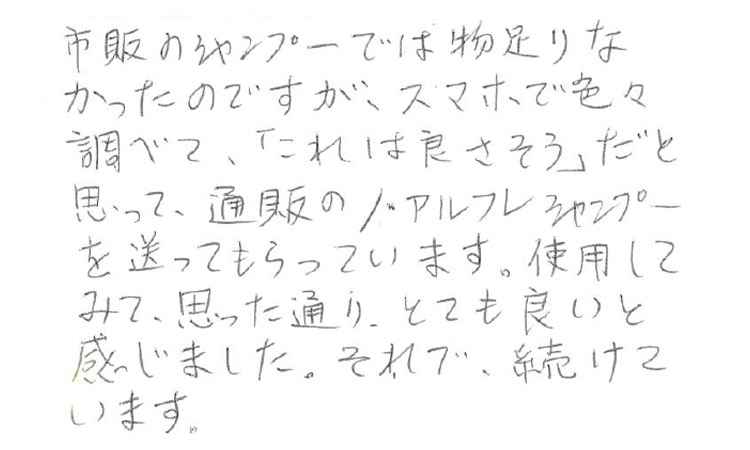 市販のシャンプーでは物足りな
かったのですが、スマホで色々
調べて、「これは良さそう」だと
思って、通販のノ・アルフレシャンプー
を送ってもらっています。使用して
みて、思った通り、とても良いと
感じました。それで、続けて
います。